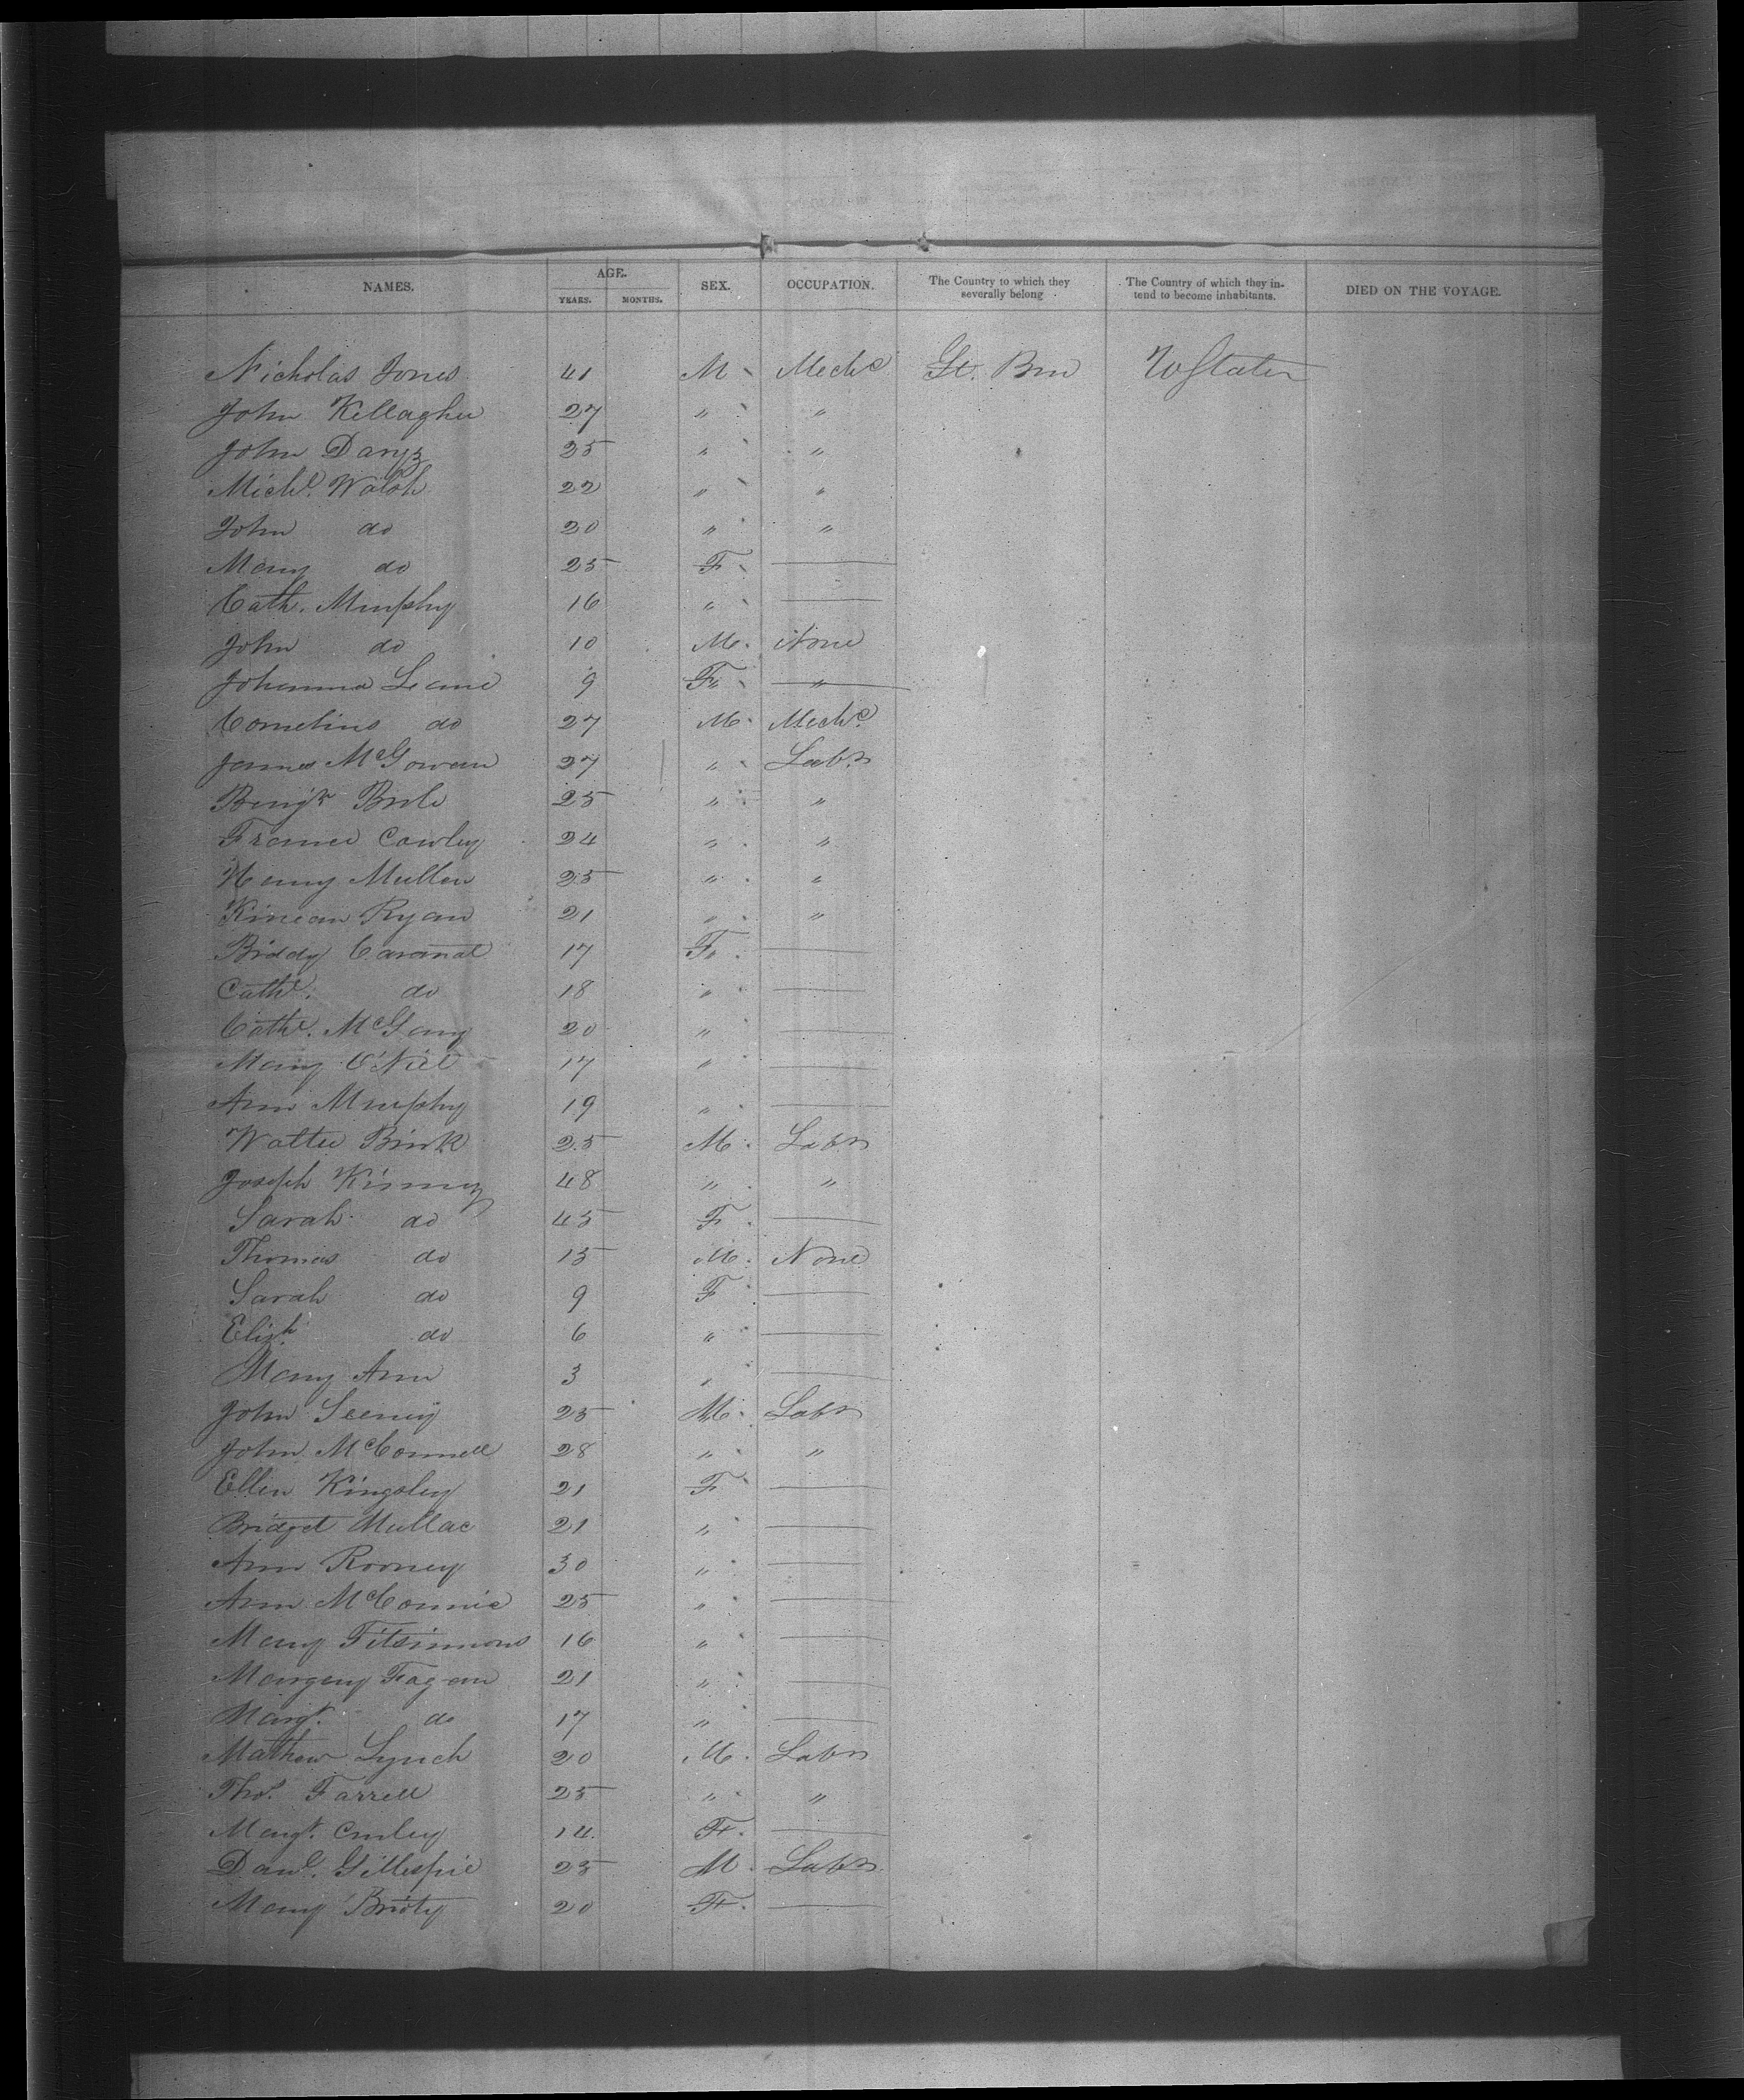 NAMES. AGE. SEX. OCCUPATION. The Country to which they severally belong The Country of which they intend to become inhabitants. DIED ON THE VOYAGE.
YEARS. MONTHS.
Nicholas Jones 41 M Mechc Gt. Brn UStates
John Killagher 27 " "
John 25 " "
Michl. Walsh 22 " "
John do 20 " "
Mary do 25 F —
Cath. Murphy 16 " —
John do 10 M. None
Johanna Leane 9 F " "
Cornelius do 27 M. Mechc
James McGowan 27 " Labr
25 " "
Frances Cowley 24 " "
Henry Mullen 25 " "
Ryan 21 " "
Biddy 17 F. —
Cathe. do 18 " —
Cathe. 20 " —
Mary O'Niel 17 " —
Ann Murphy 19 " —
Walter 25 M. Labr
Joseph Kinney 48 " "
Sarah do 45 F. —
Thomas do 15 M. None
Sarah do 9 F —
Elizh. do 6 " —
Mary Ann 3 " —
John 25 M. Labr
John McConnell 28 " "
Ellen Kingsley 21 F —
Bridget Mullac 21 " —
Ann Rooney 30 " —
Ann 25 " —
Mary Fitsimmons 16 " —
Margery Fagan 21 " —
Margt. do 17 " —
Mathew Lynch 20 M. Labr
Thos. Farrell 25 " "
Margt. Curley 14. F. —
Danl. Gillespie 25 M. Labr
Mary 20 F. —